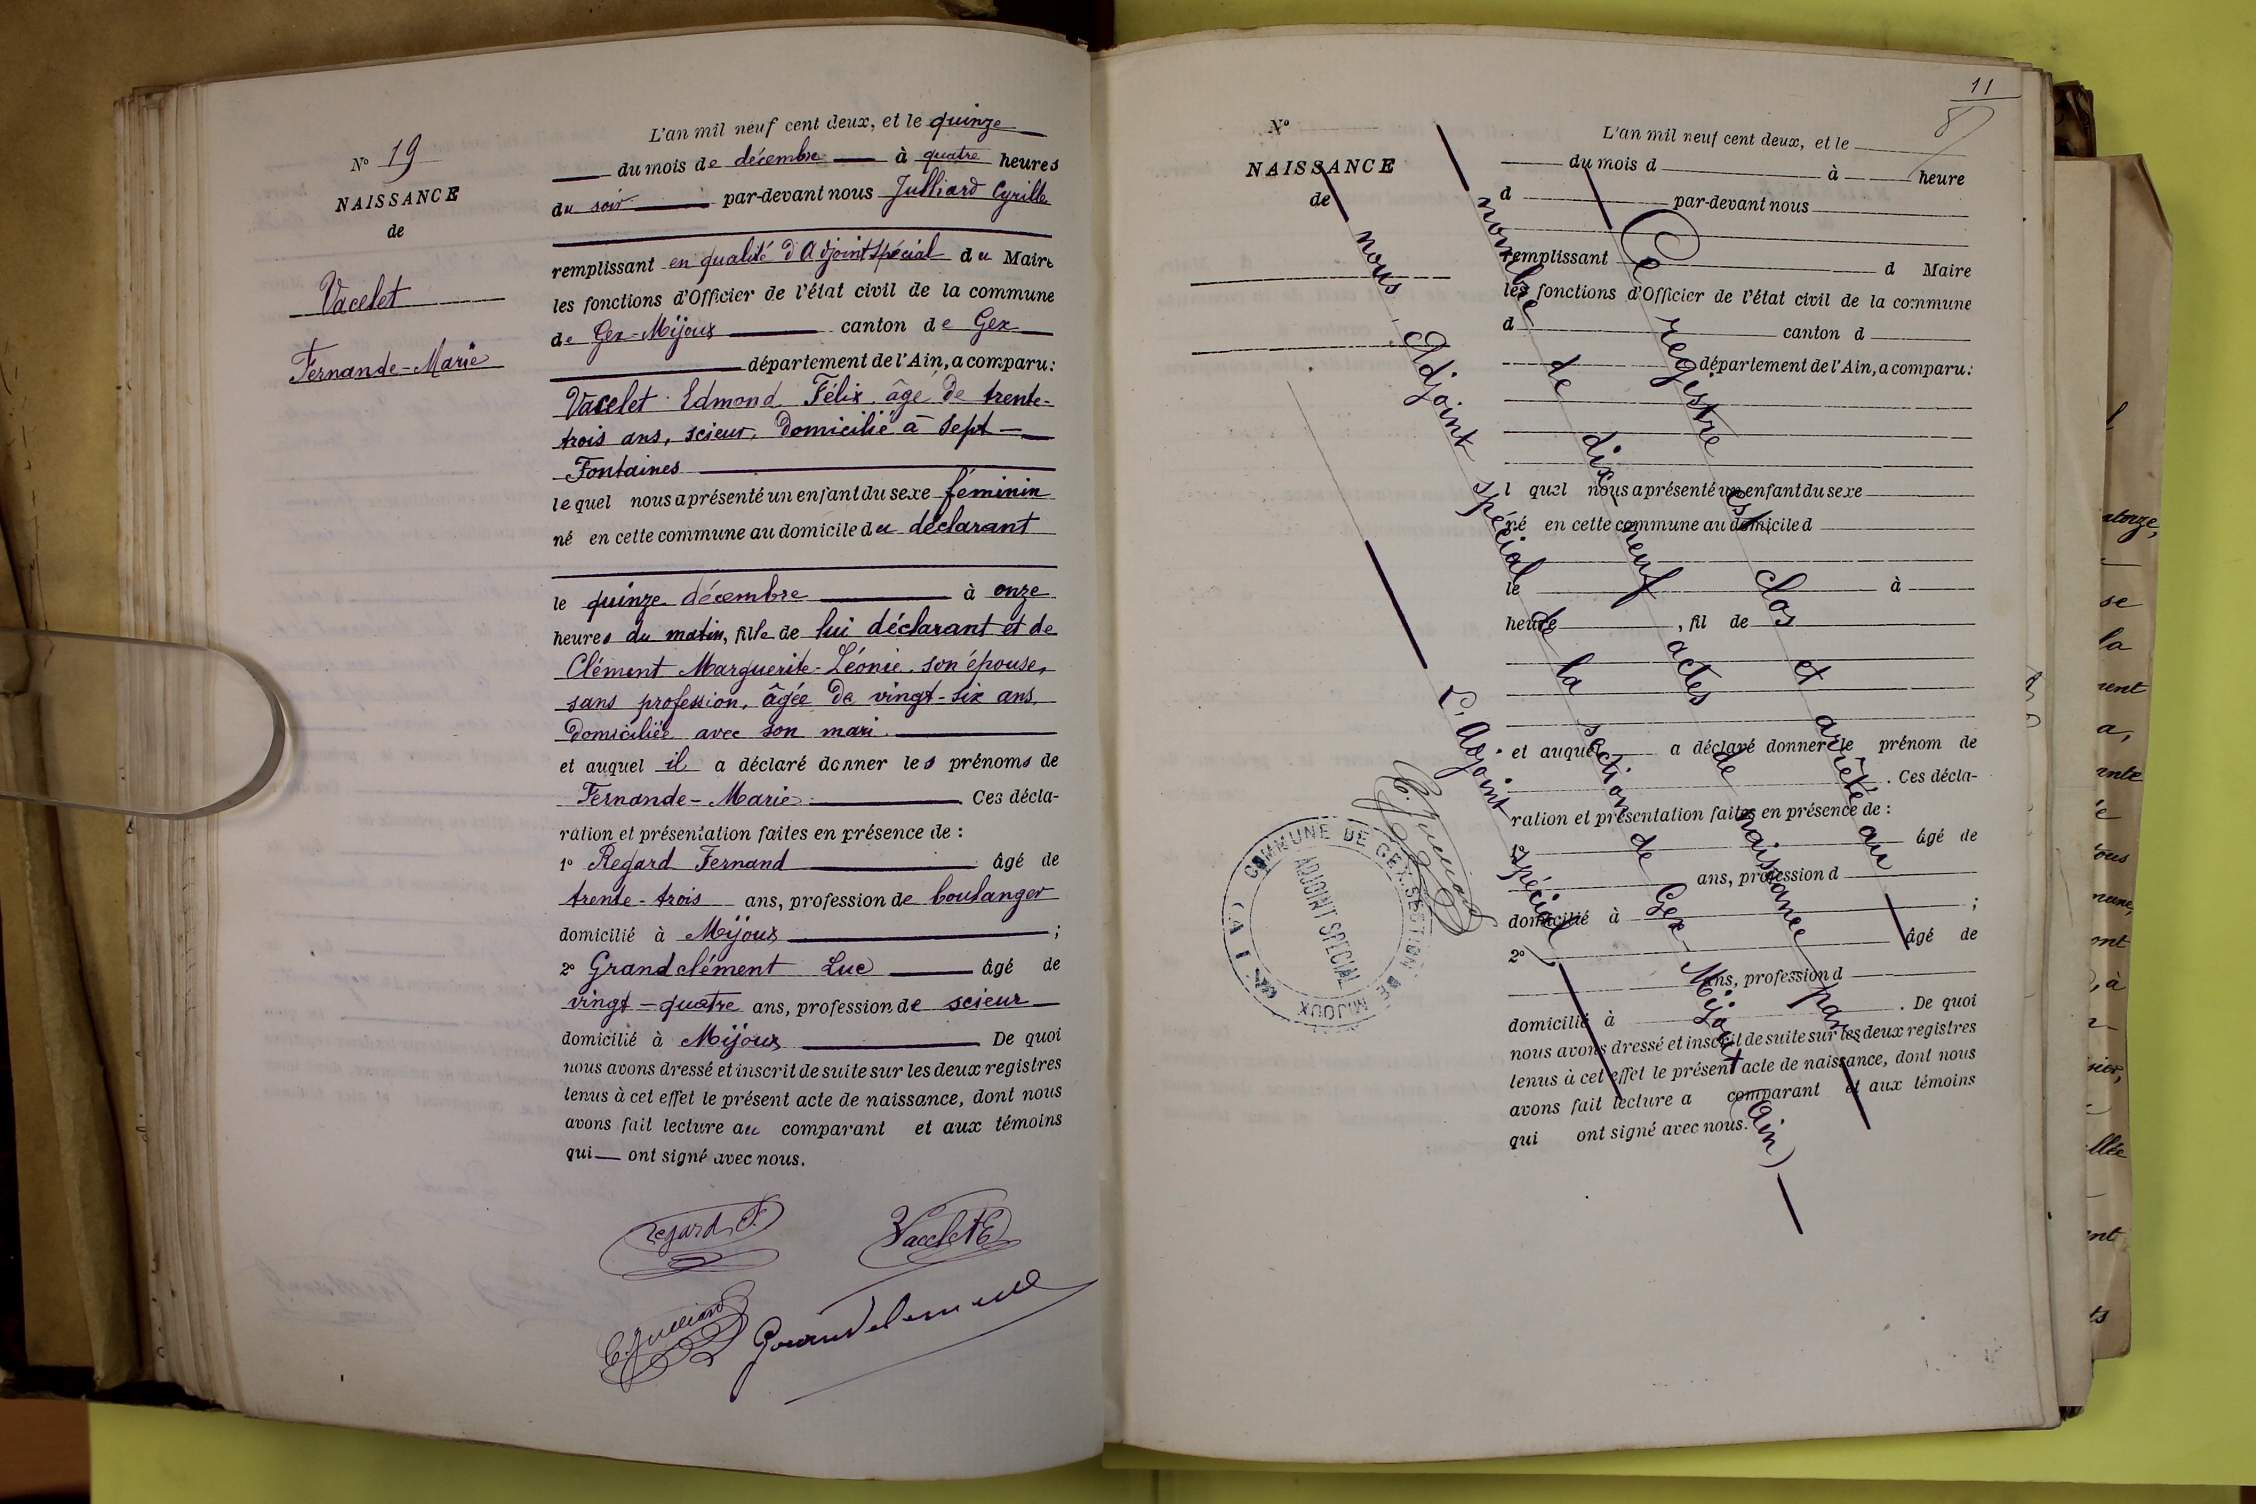 N° 19
NAISSANCE
de
Vacelet
Fernande-Marie
L'an mil neuf cent deux, et le quinze
du mois de décembre à quatre heures
du soir par-devant nous Julliard Cyrille
remplissant en qualité d'Adjoint spécial du Maire
les fonctions d'Officier de l'état civil de la commune
de Gex-Mijoux canton de Gex
département de l'Ain, a comparu:
Vacelet Edmond Félix âgé de trente-
trois ans, scieur, domicilié à Sept-
Fontaines
lequel nous a présenté un enfant du sexe féminin
né en cette commune au domicile du déclarant
le quinze décembre à onze
heures du matin, fille de lui déclarant et de
Clément Marguerite-Léonie, son épouse,
sans profession, âgée de vingt-six ans,
domiciliée avec son mari.
et auquel il a déclaré donner les prénoms de
Fernande-Marie. Ces décla-
ration et présentation faites en présence de :
1° Regard Fernand âgé de
trente-trois ans, profession de boulanger
domicilié à Mijoux ;
2° Grandclément Luc âgé de
vingt-quatre ans, profession de scieur
domicilié à Mijoux De quoi
nous avons dressé et inscrit de suite sur les deux registres
tenus à cet effet le présent acte de naissance, dont nous
avons fait lecture au comparant et aux témoins
qui ont signé avec nous.
Regard F.
Vacelet E
C. Julliard
Grandclement
11
8
N°
NAISSANCE
de
L'an mil neuf cent deux, et le
du mois d à heure
d par-devant nous
remplissant d Maire
les fonctions d'Officier de l'état civil de la commune
d canton d
département de l'Ain, a comparu:
l quel nous a présenté un enfant du sexe
né en cette commune au domicile d
le à
heure , fil de
et auquel a déclaré donner le prénom de
. Ces décla-
ration et présentation faites en présence de :
1° âgé de
ans, profession d
domicilié à ;
2° âgé de
ans, profession d
domicilié à . De quoi
nous avons dressé et inscrit de suite sur les deux registres
tenus à cet effet le présent acte de naissance, dont nous
avons fait lecture a comparant et aux témoins
qui ont signé avec nous.
Ce registre est clos et arrêté au
nombre de dix-neuf actes de naissance par
nous Adjoint spécial de la section de Gex-Mijoux (Ain)
L'Adjoint spécial,
C. Julliard
COMMUNE DE GEX. SECTION DE MIJOUX
(AIN)
ADJOINT SPECIAL